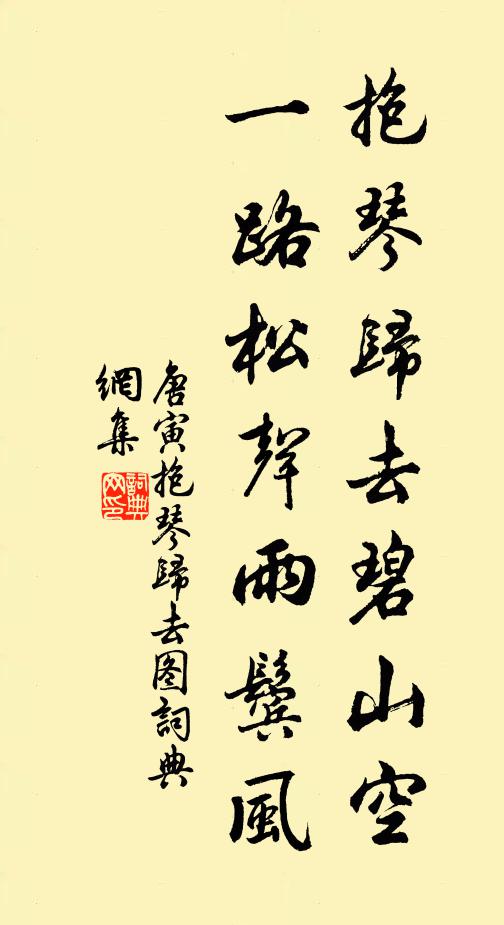 抱琴歸去碧山空
一路松聲兩鬢風
唐寅抱琴歸去图詞典
網集
詞典
网印